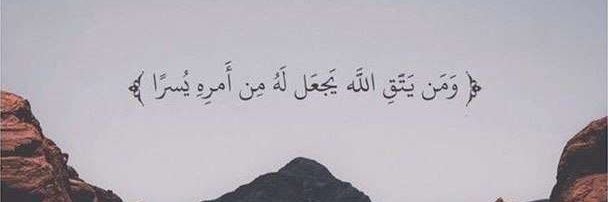 ﴿ وَمَن يَتَّقِ اللَّه يَجعَل لَهُ مِن أَمرِهِ يُسرًا ﴾